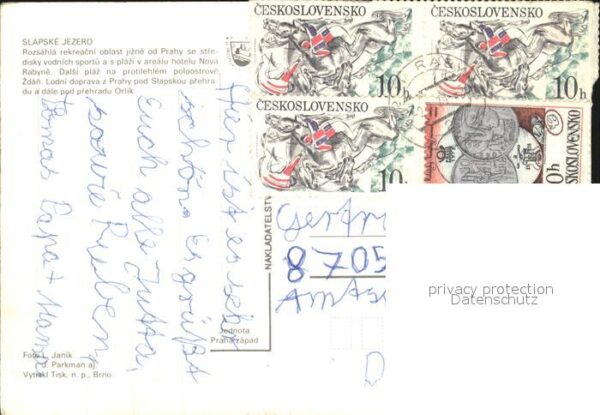 SLAPSKÉ JEZERO
Rozsáhlá rekreační oblast jižně od Prahy se stře-
disky vodních sportů a s pláží v areálu hotelu Nová
Rabyně. Další pláž na protilehlém poloostrově
Ždáň. Lodní doprava z Prahy pod Slapskou přehra-
du a dále pod přehradu Orlík.
ČESKOSLOVENSKO
10h
ČESKOSLOVENSKO
10h
ČESKOSLOVENSKO
10
ČESKOSLOVENSKO
0h
Hier ist es sehr
schön. Es grüßt
Euch alle Jutta,
sowie Ruben,
Tomas Papa + Mama
NAKLADATELSTV
Jednota
Praha-západ
8705
privacy protection
Datenschutz
Foto J. Janík
Parkman aj.
Vytiskl Tisk, n. p., Brno